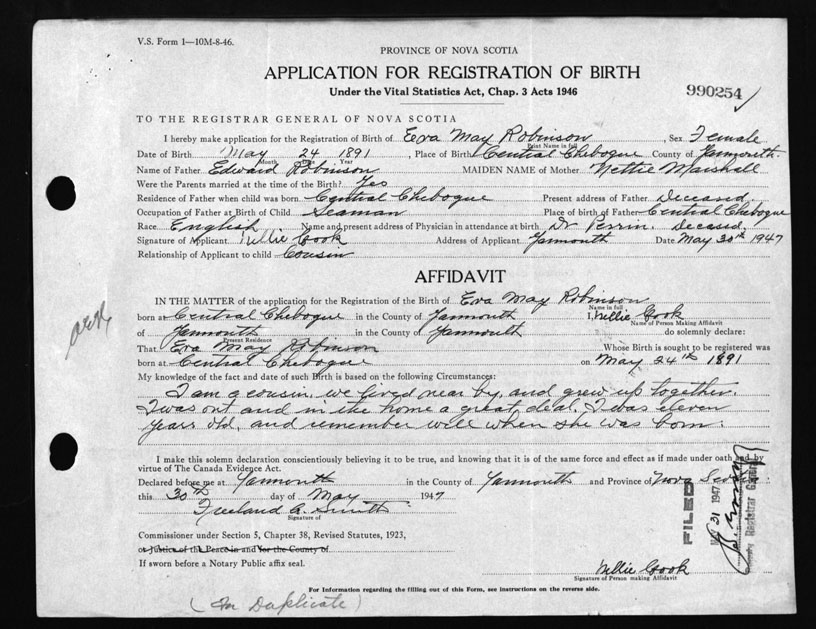 V.S. Form 1—10M-8-46.
PROVINCE OF NOVA SCOTIA
APPLICATION FOR REGISTRATION OF BIRTH
Under the Vital Statistics Act, Chap. 3 Acts 1946
990254 ✓
TO THE REGISTRAR GENERAL OF NOVA SCOTIA
I hereby make application for the Registration of Birth of Eva May Robinson, Sex Female
Print Name in full
Date of Birth May 24 1891, Place of Birth Central Chebogue County of Yarmouth.
Month Day Year
Name of Father Edward Robinson MAIDEN NAME of Mother Nettie Marshall
Were the Parents married at the time of the Birth? Yes
Residence of Father when child was born Central Chebogue Present address of Father Deceased
Occupation of Father at Birth of Child Seaman Place of birth of Father Central Chebogue
Race English Name and present address of Physician in attendance at birth Dr Perrin. Deceased.
Signature of Applicant Nellie Cook Address of Applicant Yarmouth Date May 30th 1947
Relationship of Applicant to child Cousin
AFFIDAVIT
IN THE MATTER of the application for the Registration of the Birth of Eva May Robinson
Name in full
born at Central Chebogue in the County of Yarmouth I, Nellie Cook
Name of Person Making Affidavit
of Yarmouth in the County of Yarmouth do solemnly declare:
Present Residence
That Eva May Robinson Whose Birth is sought to be registered was
born at Central Chebogue on May 24th 1891
My knowledge of the fact and date of such Birth is based on the following Circumstances:
I am a cousin, we lived near by, and grew up together.
I was out and in the home a great deal. I was eleven
years old, and remember well when she was born.
I make this solemn declaration conscientiously believing it to be true, and knowing that it is of the same force and effect as if made under oath and by
virtue of The Canada Evidence Act.
Declared before me at Yarmouth in the County of Yarmouth and Province of Nova Scotia
this 30th day of May 1947
Freeland A. Smith
Signature of
Commissioner under Section 5, Chapter 38, Revised Statutes, 1923,
or Justice of the Peace in and for the County of
If sworn before a Notary Public affix seal.
FILED
31 1947
Registrar General
Nellie Cook
Signature of Person making Affidavit
For Information regarding the filling out of this Form, see instructions on the reverse side.
(In Duplicate)